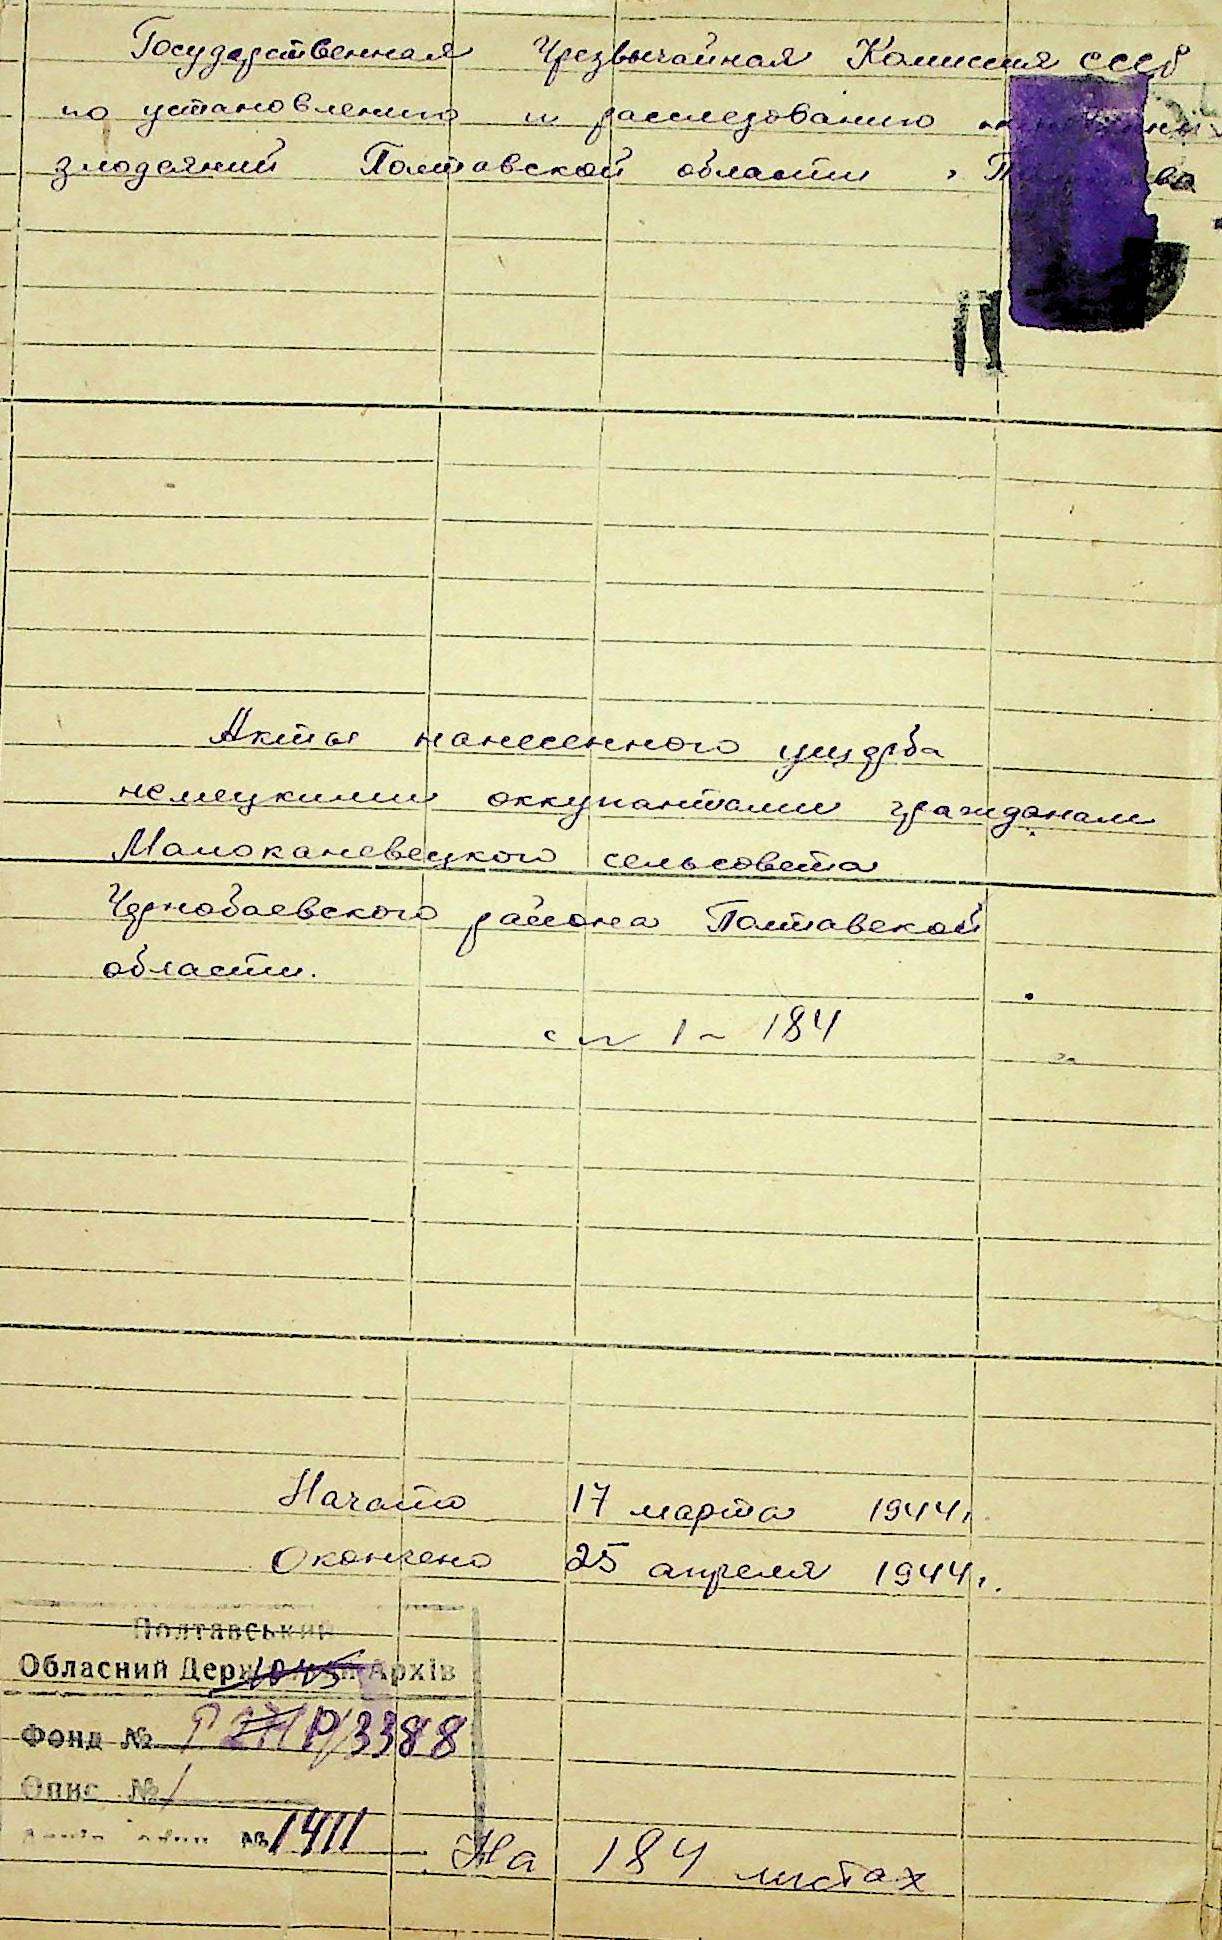 Государственная Чрезвычайная Комиссия СССР
по установлению и расследованию
злодеяний Полтавской области
Акты нанесенного ущерба
немецкими оккупантами гражданам
Малоканевецкого сельсовета
Чернобаевского района Полтавской
области.
с № 1 – 184
Начато 17 марта 1944г.
Окончено 25 апреля 1944г.
Полтавський
Обласний Держ Архів
Фонд № Р/3388
Опис № 1
№ 1411
На 184 листах